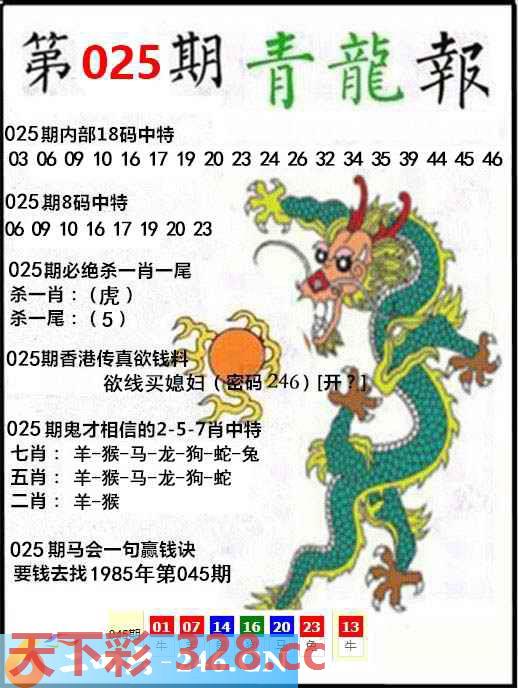 第025期 青龍報
025期内部18码中特
03 06 09 10 16 17 19 20 23 24 26 32 34 35 39 44 45 46
025期8码中特
06 09 10 16 17 19 20 23
025期必绝杀一肖一尾
杀一肖：（虎）
杀一尾：（5）
025期香港传真欲钱料
欲线买媳妇（密码246）[开？]
025期鬼才相信的2-5-7肖中特
七肖： 羊-猴-马-龙-狗-蛇-兔
五肖： 羊-猴-马-龙-狗-蛇
二肖： 羊-猴
025期马会一句赢钱诀
要钱去找1985年第045期
01 07 14 16 20 23 13
牛 马 兔 牛
天下彩-328.cc